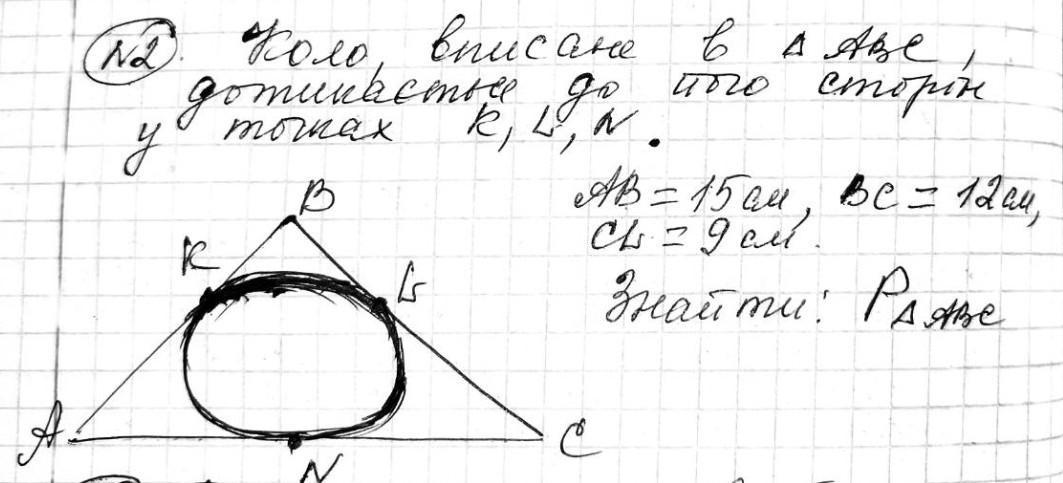 №2. Коло, вписане в △ ABC,
дотикається до його сторін
у точках K, L, N.
AB = 15 см, BC = 12 см,
CL = 9 см.
Знайти: P△ABC
B
K
L
A
C
N